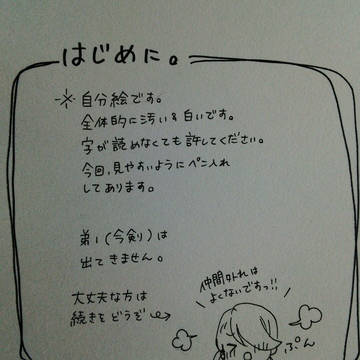 はじめに。
※自分絵です。
全体的に汚い&白いです。
字が読めなくても許してください。
今回、見やすいようにペン入れ
してあります。
弟1(今剣)は
出てきません。
大丈夫な方は
続きをどうぞ
仲間外れは
よくないですっ!!
ぷん